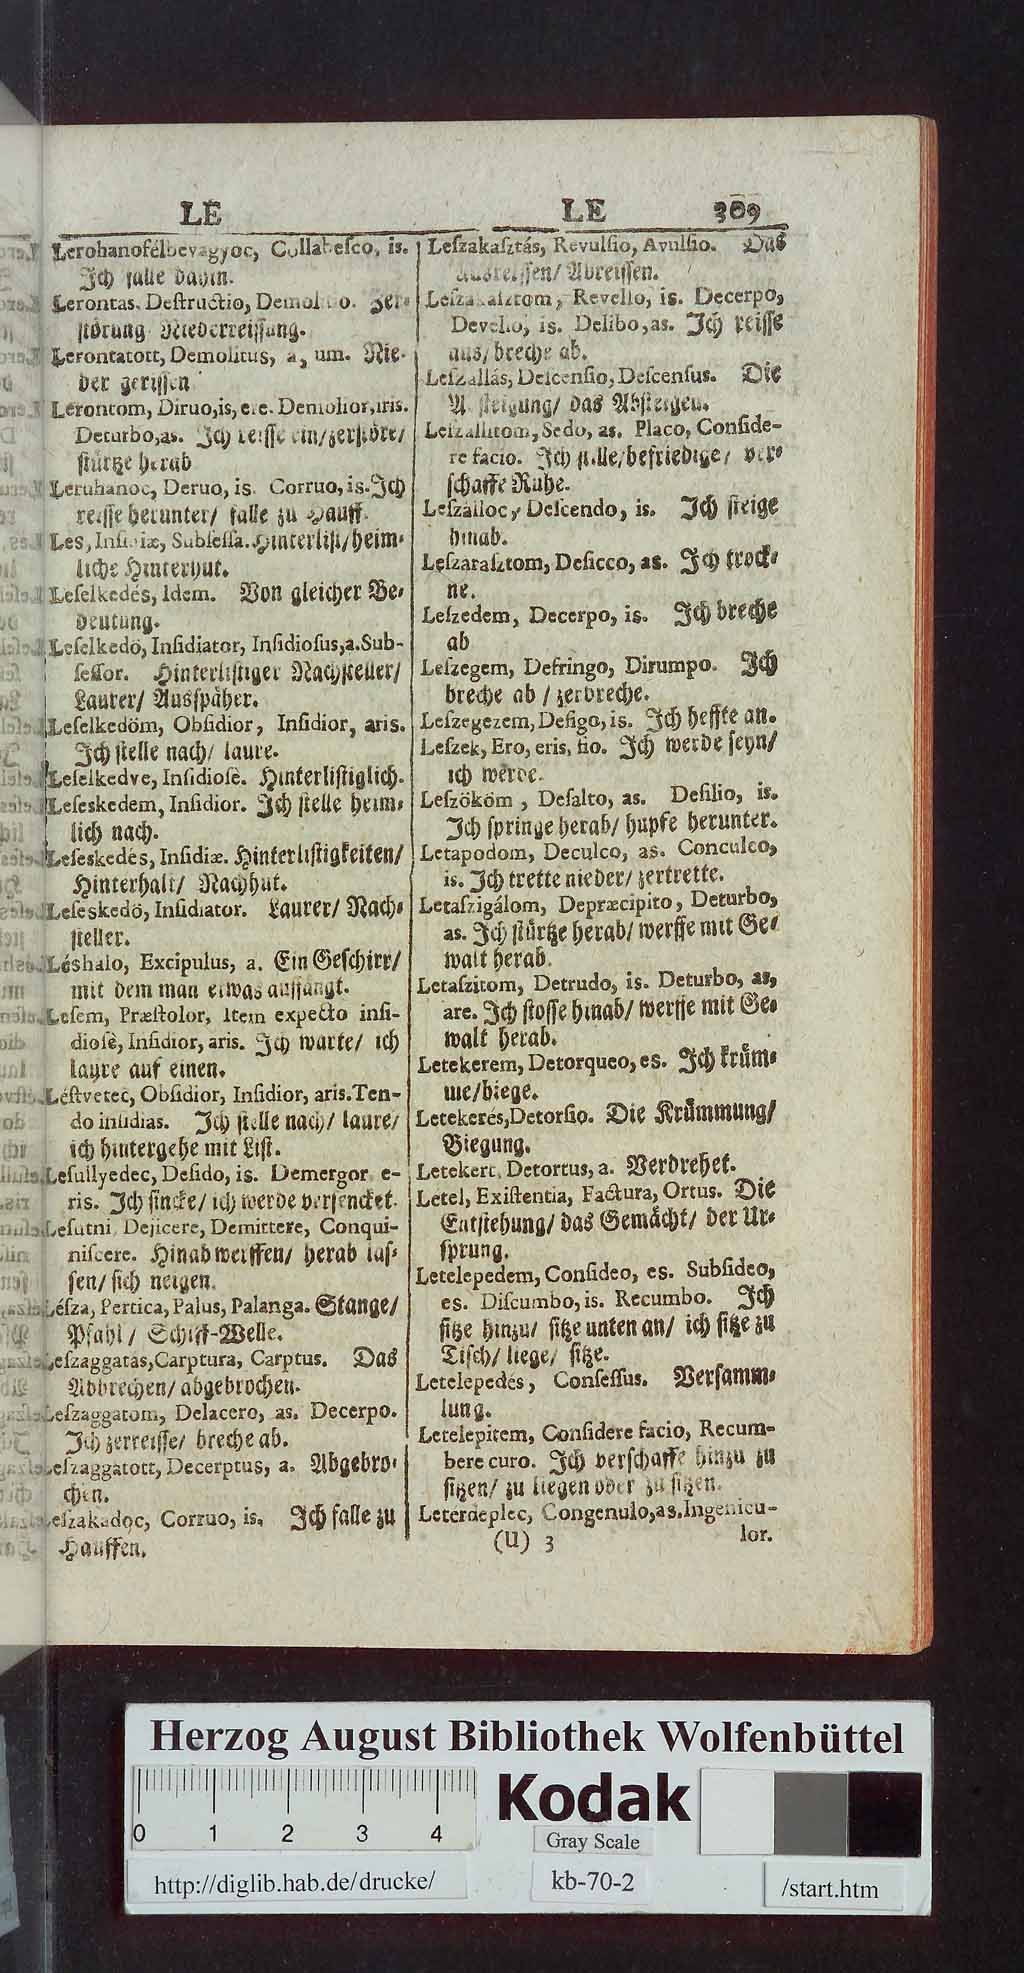 LE
Lerohanofélbevágyoc, Collabesco, is.
Jch falle dahin.
Lerontas, Destructio, Demolitio. Zer-
störung Niederreissung.
Lerontatott, Demolitus, a, um. Nie-
der gerissen
Lerontom, Diruo, is, ere. Demolior, iris.
Deturbo, as. Jch reisse ein/ zerstöre/
stürtze herab
Leruhanoc, Deruo, is. Corruo, is. Jch
reisse herunter/ falle zu Hauff.
Les, Insidiæ, Subsessa. Hinterlist/ heim-
liche Hinterhut.
Leselkedés, Idem. Von gleicher Be-
deutung.
Leselkedö, Insidiator, Insidiosus, a. Sub-
sessor. Hinterlistiger Nachsteller/
Laurer/ Ausspäher.
Leselkedöm, Obsidior, Insidior, aris.
Jch stelle nach/ laure.
Leselkedve, Insidiosè. Hinterlistiglich.
Leseskedem, Insidior. Jch stelle heim-
lich nach.
Leseskedés, Insidiæ. Hinterlistigkeiten/
Hinterhalt/ Nachhut.
Leseskedö, Insidiator. Laurer/ Nach-
steller.
Léshalo, Excipulus, a. Ein Geschirr/
mit dem man etwas auffängt.
Lesem, Præstolor, Item expecto insi-
diosè, Insidior, aris. Jch warte/ ich
laure auf einen.
Léstvetec, Obsidior, Insidior, aris. Ten-
do insidias. Jch stelle nach/ laure/
ich hintergehe mit List.
Lesullyedec, Desido, is. Demergor, e-
ris. Jch sincke/ ich werde versencket.
Lesutni, Dejicere, Demittere, Conqui-
niscere. Hinab werffen/ herab las-
sen/ sich neigen.
Lésza, Pertica, Palus, Palanga. Stange/
Pfahl/ Schiff-Welle.
Leszaggatas, Carptura, Carptus. Das
Abbrechen/ abgebrochen.
Leszaggatom, Delacero, as. Decerpo.
Jch zerreisse/ breche ab.
Leszaggatott, Decerptus, a. Abgebro-
chen.
Leszakadoc, Corruo, is. Jch falle zu
Hauffen.
LE 309
Leszakasztás, Revulsio, Avulsio. Das
Ausreissen/ Abreissen.
Leszakasztom, Revello, is. Decerpo,
Devello, is. Delibo, as. Jch reisse
aus/ breche ab.
Leszallás, Descensio, Descensus. Die
Absteigung/ das Absteigen.
Leszallitom, Sedo, as. Placo, Conside-
re facio. Jch stille/ befriedige/ ver-
schaffe Ruhe.
Leszálloc, Descendo, is. Jch steige
hinab.
Leszarasztom, Desicco, as. Jch trock-
ne.
Leszedem, Decerpo, is. Jch breche
ab
Leszegem, Defringo, Dirumpo. Jch
breche ab/ zerbreche.
Leszegezem, Defigo, is. Jch heffte an.
Leszek, Ero, eris, fio. Jch werde seyn/
ich werde.
Leszököm, Desalto, as. Desilio, is.
Jch springe herab/ hupfe herunter.
Letapodom, Deculco, as. Conculco,
is. Jch trette nieder/ zertrette.
Letaszigálom, Depræcipito, Deturbo,
as. Jch stürtze herab/ werffe mit Ge-
walt herab.
Letaszitom, Detrudo, is. Deturbo, as,
are. Jch stosse hinab/ werffe mit Ge-
walt herab.
Letekerem, Detorqueo, es. Jch krüm-
me/ biege.
Letekerés, Detorsio. Die Krümmung/
Biegung.
Letekert, Detortus, a. Verdrehet.
Letel, Existentia, Factura, Ortus. Die
Entstehung/ das Gemächt/ der Ur-
sprung.
Letelepedem, Consideo, es. Subsideo,
es. Discumbo, is. Recumbo. Jch
sitze hinzu/ sitze unten an/ ich sitze zu
Tisch/ liege/ sitze.
Letelepedés, Consessus. Versamm-
lung.
Letelepitem, Considere facio, Recum-
bere curo. Jch verschaffe hinzu zu
sitzen/ zu liegen oder zu sitzen.
Leterdeplec, Congenulo, as. Ingenicu-
(U) 3 lor.
Herzog August Bibliothek Wolfenbüttel
0 1 2 3 4
Kodak
Gray Scale
http://diglib.hab.de/drucke/
kb-70-2
/start.htm